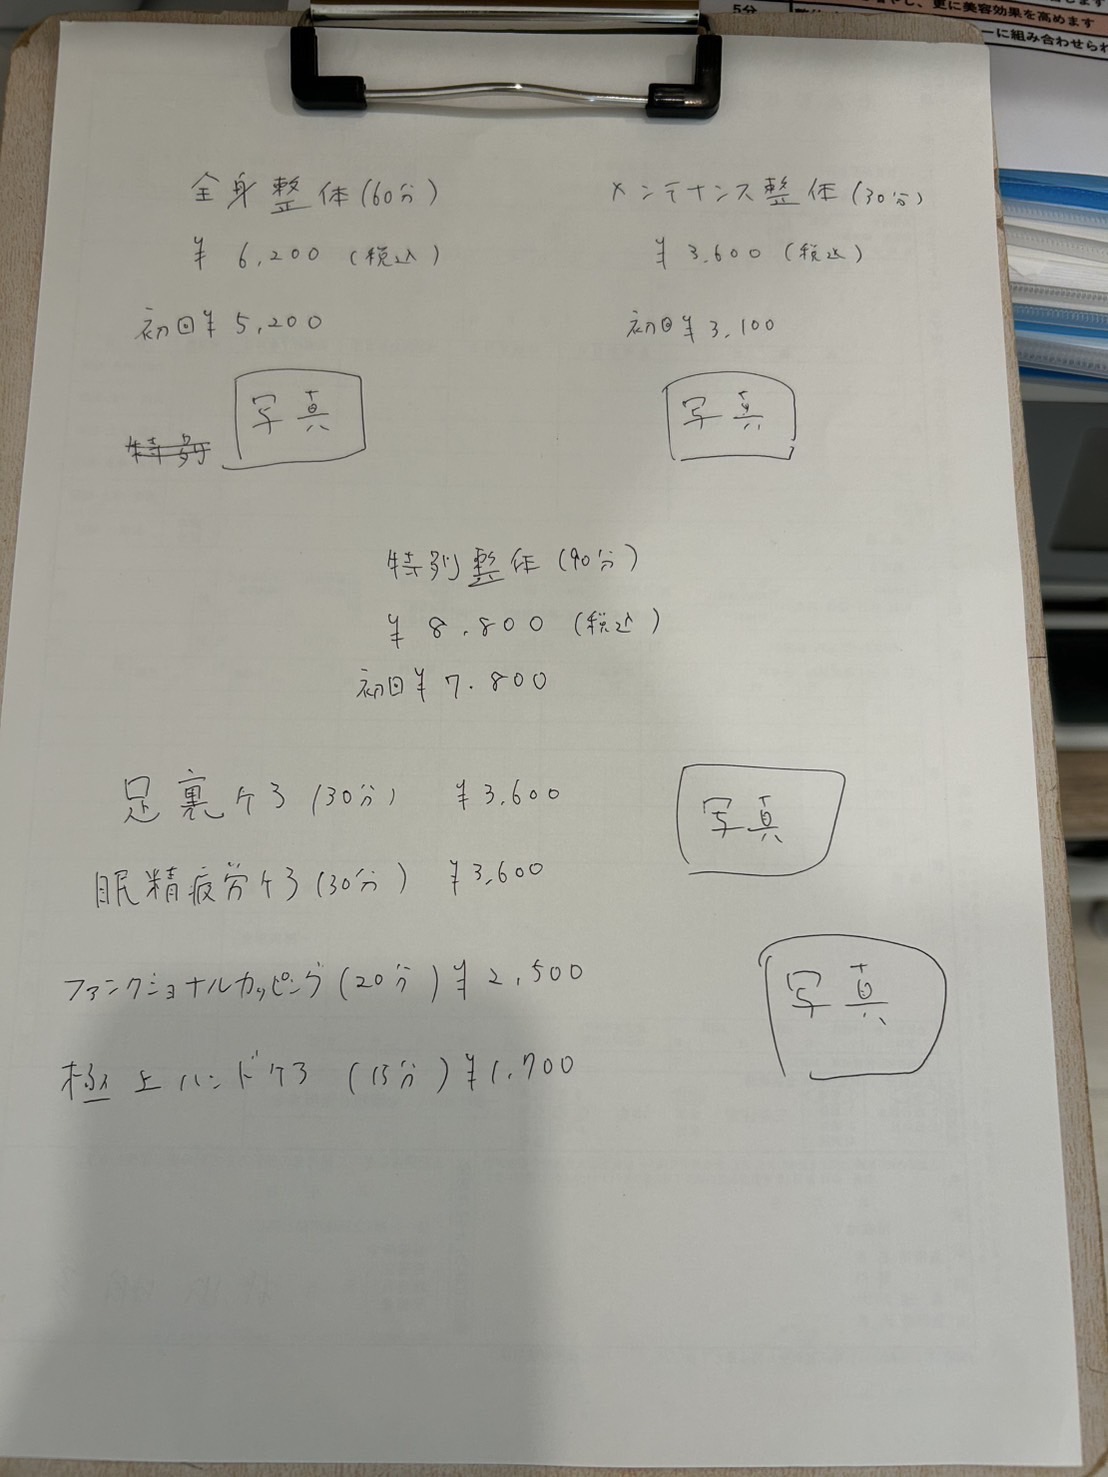 5分
更に美容効果を高めます
ーに組み合わせられ
全身整体(60分)
¥ 6,200 (税込)
初回¥ 5,200
写真
特別
メンテナンス整体(30分)
¥ 3,600 (税込)
初回¥ 3,100
写真
特別整体(90分)
¥ 8,800 (税込)
初回¥ 7,800
足裏ケア(30分) ¥3,600
写真
眼精疲労ケア(30分) ¥3,600
ファンクショナルカッピング(20分)¥2,500
写真
極上ハンドケア (15分)¥1,700